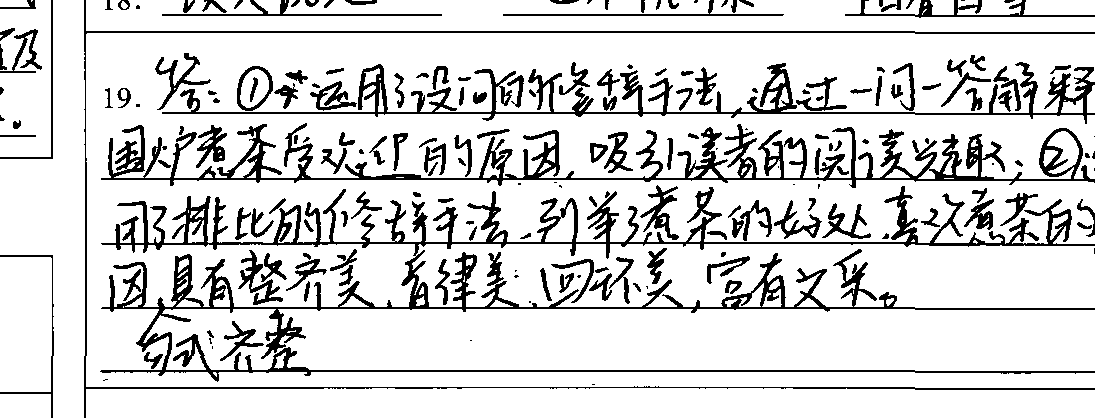 18.
级
19. 答：①运用了设问的修辞手法，通过一问一答解释
围炉煮茶受欢迎的原因，吸引读者的阅读兴趣；②
用了排比的修辞手法，列举了煮茶的好处，喜欢煮茶的
因，具有整齐美、音律美、回环美，富有文采。
句式齐整